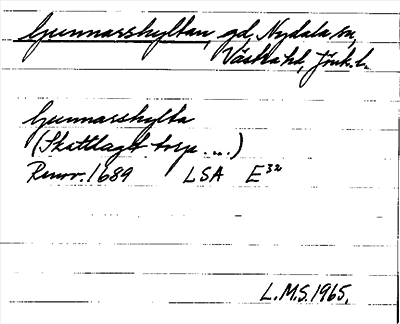 Gunnarshyltan, gd, Nydala sn,
Västra hd, Jönk. l.
Gunnarshylta
(Skattlagt torp ...)
Renov. 1689 LSA E32
L.M.S. 1965.